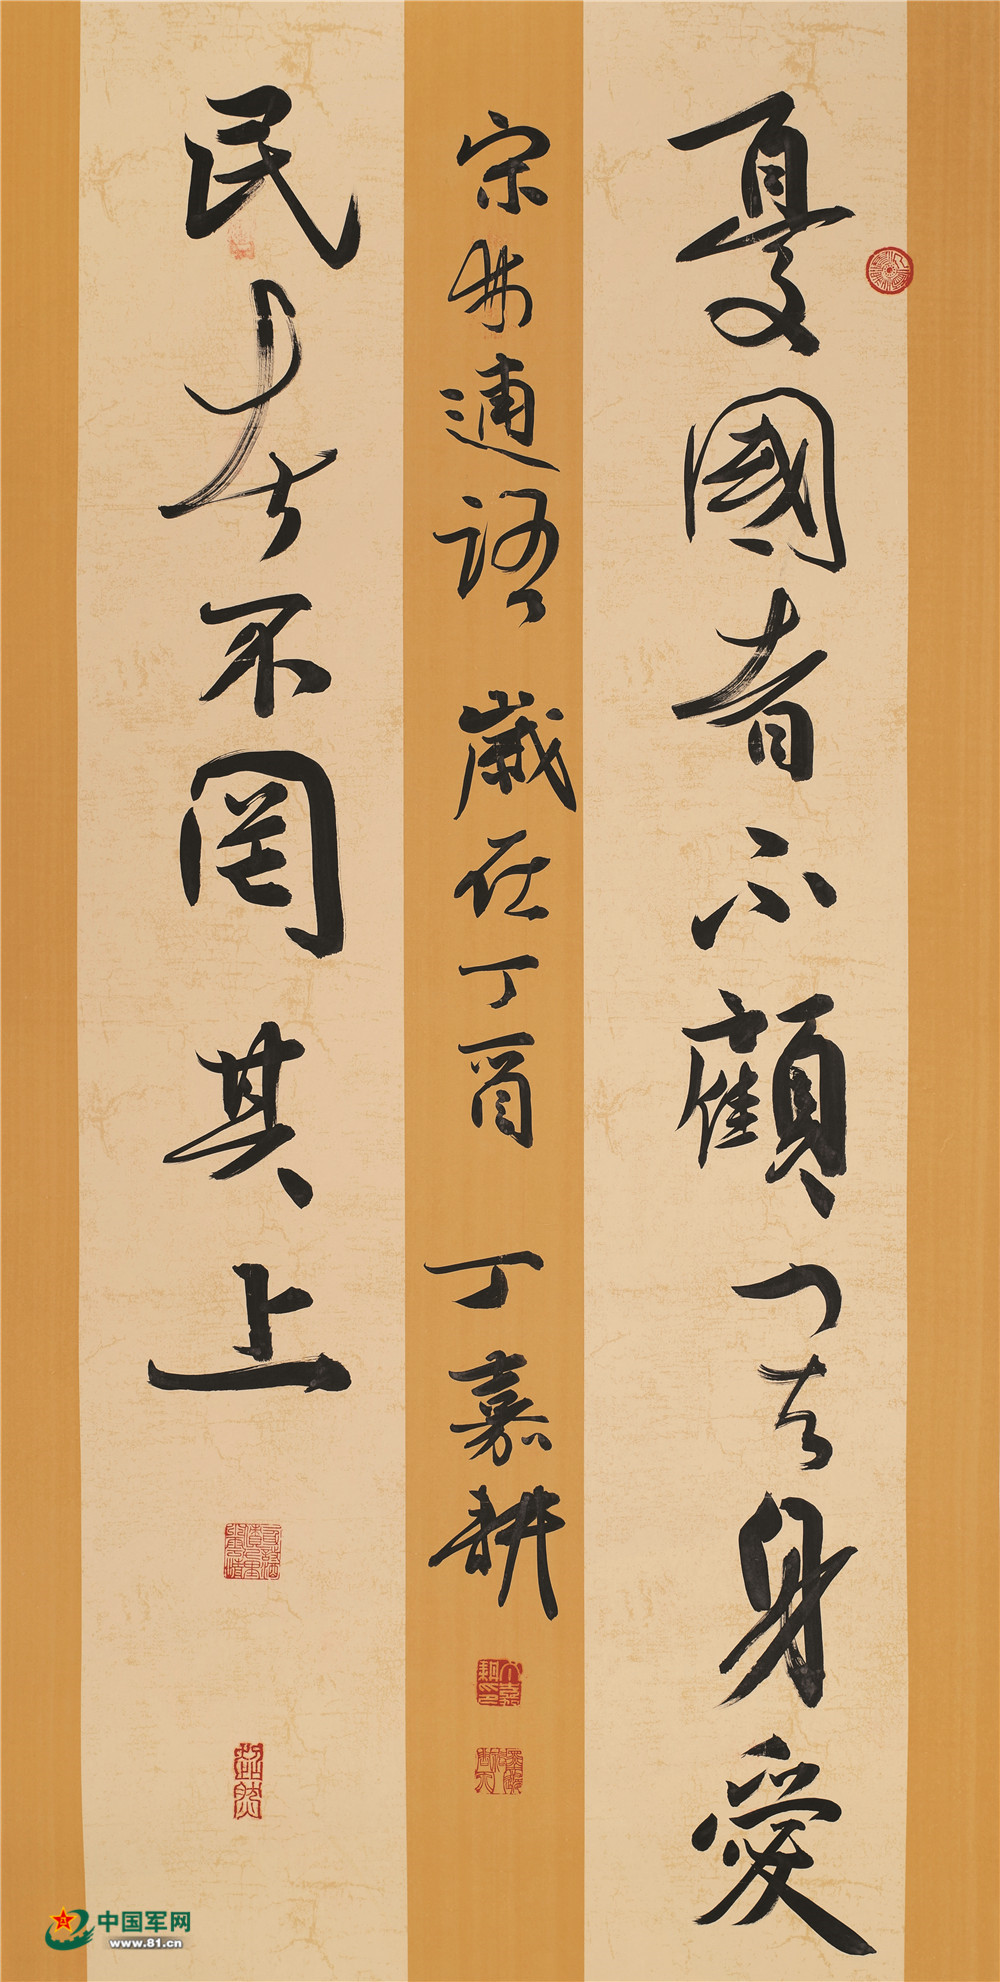 憂國者不顧其身愛
民者不罔其上
宋林逋語 歲在丁酉 丁嘉耕
中国军网
www.81.cn